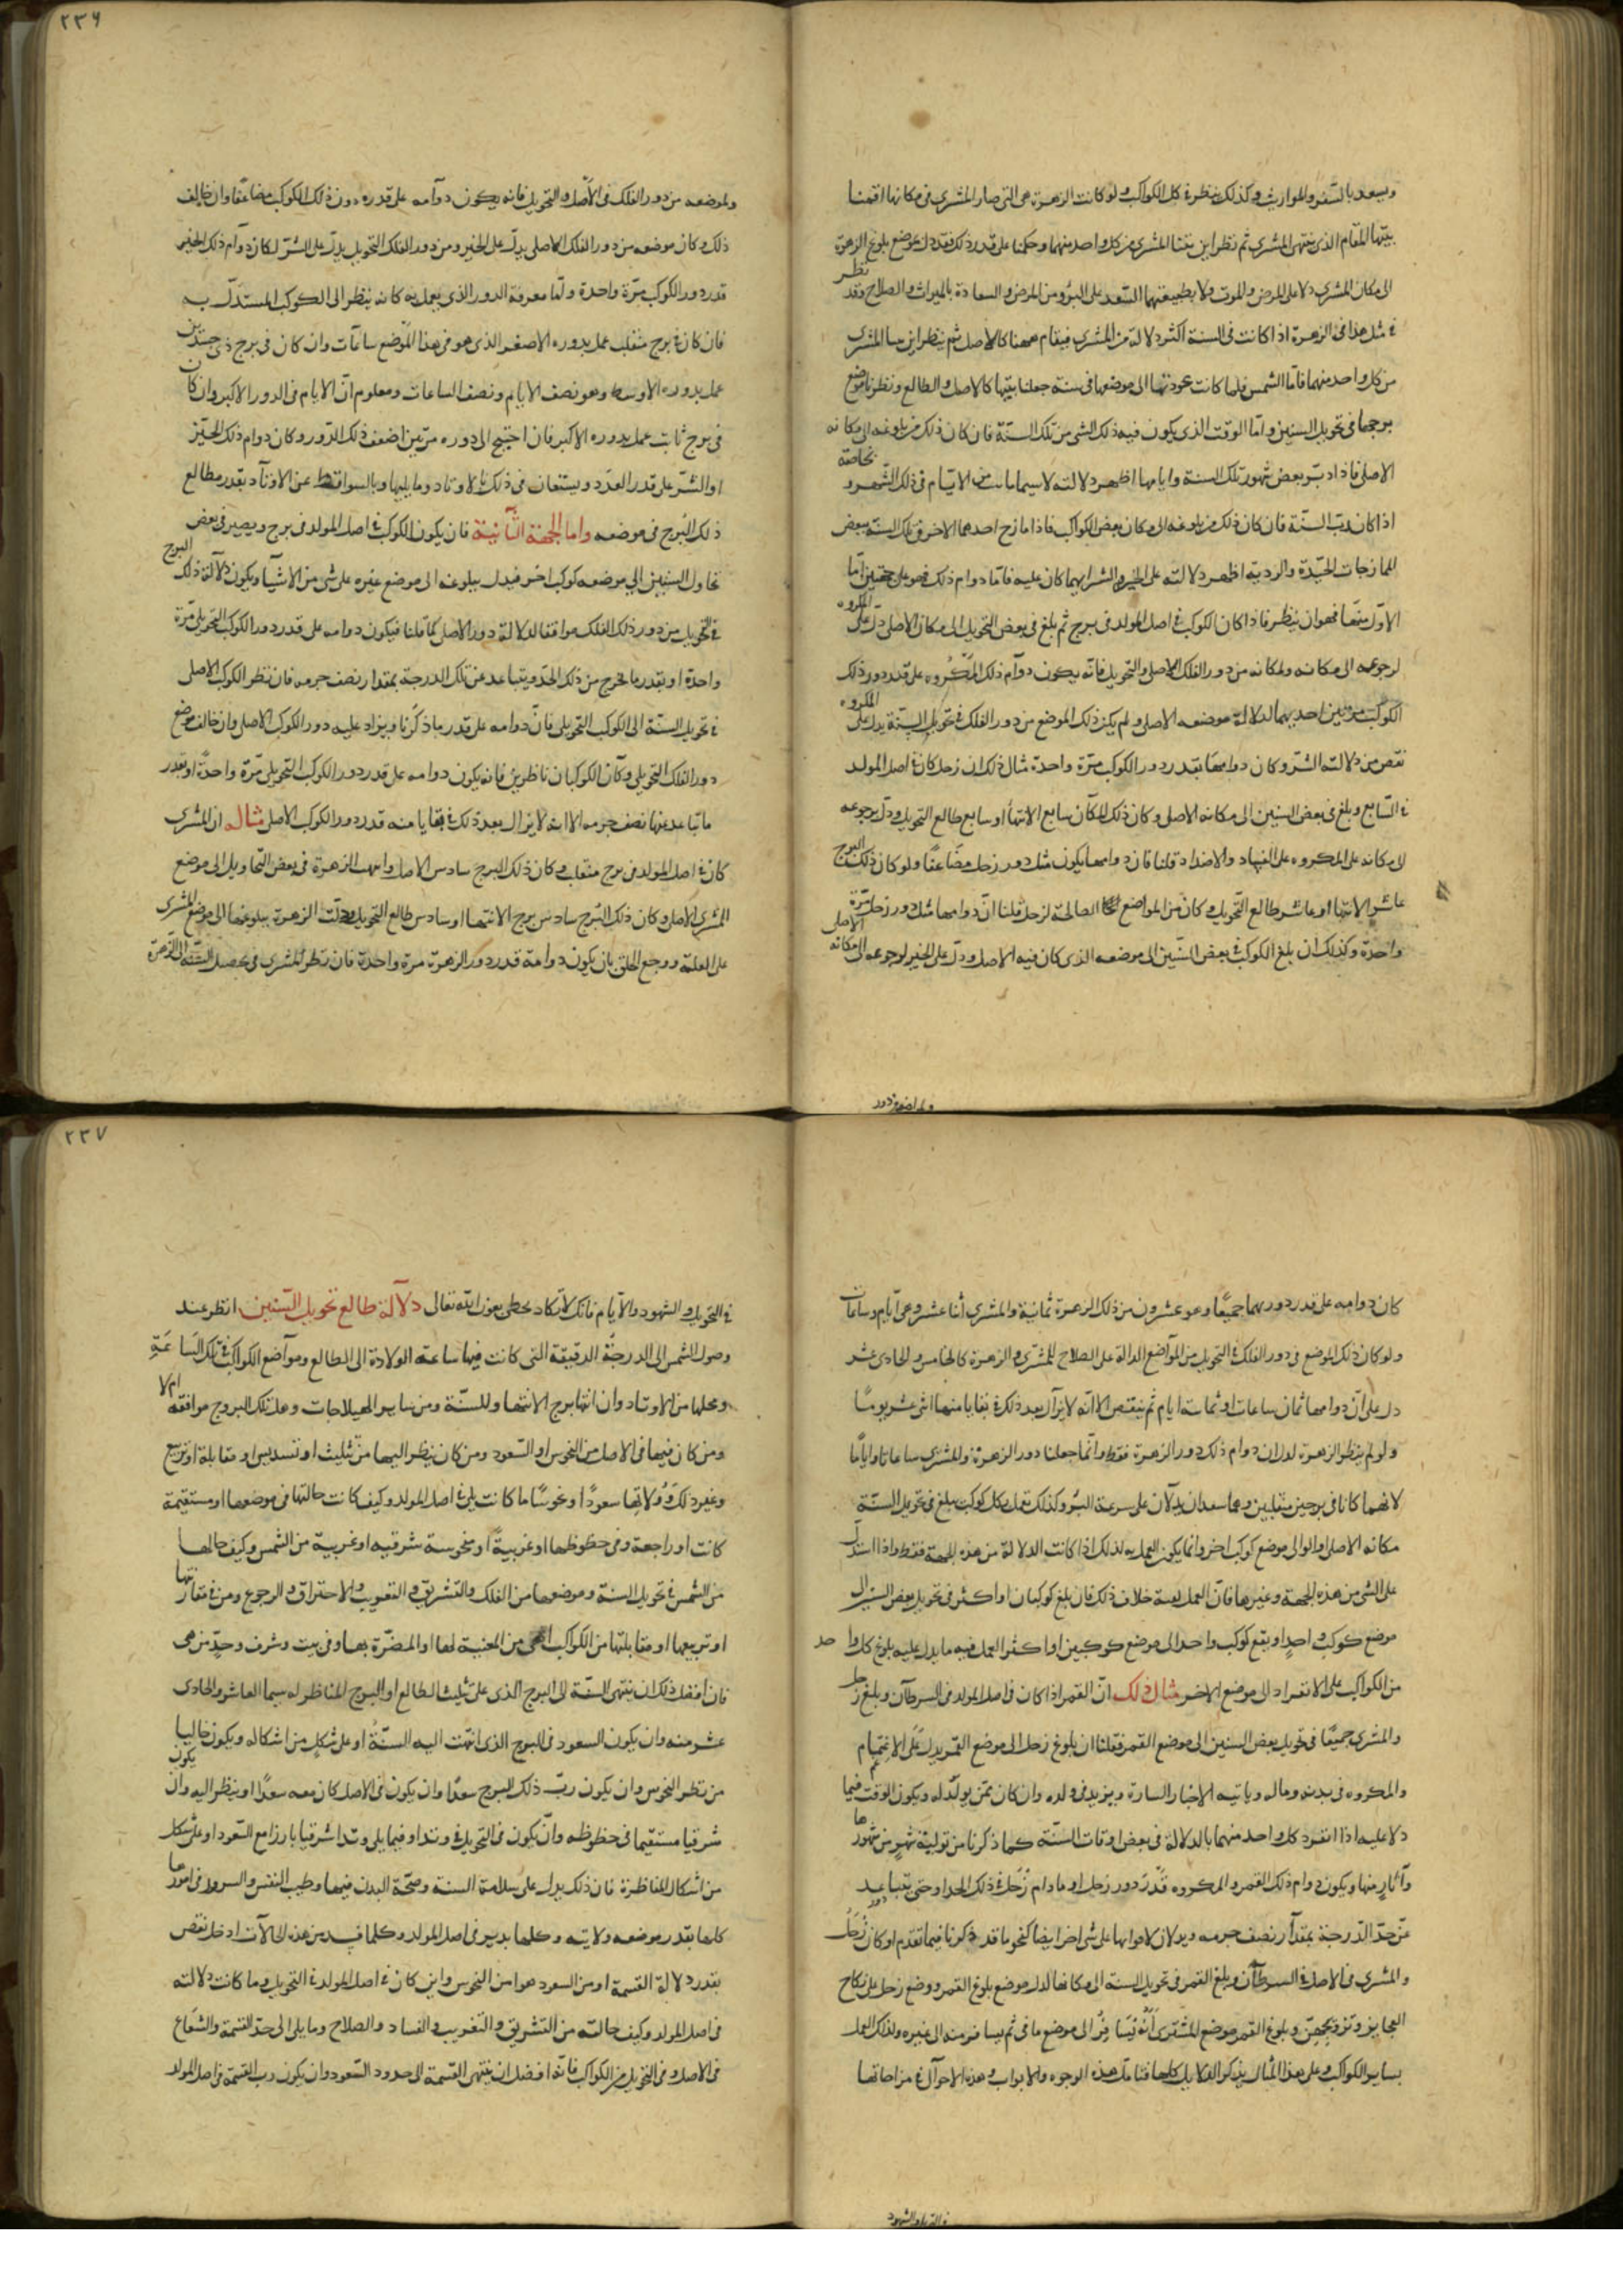 ويسعد بالسفر والمواريث وكذلك ينظر في كل الكواكب ولو كانت الزهرة هي التي صار المشتري في مكانها اقمنا
بيتها المقام الذي ينتهي المشتري ثم نظر اين بيتا المشتري من كل واحد منهما وحكمنا على قدر ذلك فقد دل موضع بلوغ الزهرة
الى مكان المشتري دلا على المرض والموت ولا بطبيعتهما السعد على البرؤ من المرض والسعادة بالميراث والصلاح وقد
نظر
في مثل هذا في الزهرة اذا كانت في السنة اكثر دلالة من المشتري فيقام ههنا كالاصل ثم ينظر اين بيتا المشتري
من كل واحد منهما فاما الشمس فلما كانت عودتها الى موضعها في سنة جعلنا بيتها كالاصل والطالع ونظرنا موضع
برجها في تحويل السنين واما الوقت الذي يكون فيه ذلك الشي من تلك السنة فان كان ذلك من بلوغه الى مكانه
الاصلي فاذا دبر بعض شهور تلك السنة وايامها اظهر دلالته لا سيما من الايام في ذلك الشهر و
بخاصة
اذا كان رب السنة فان كان ذلك من بلوغه الى مكان بعض الكواكب فاذا مازج احدهما الاخر في تلك السنة ببعض
الممازجات الجيدة والردية اظهر دلالته على الخير والشر ايهما كان عليه فاما دوام ذلك فهو على جهتين اما
الاول منها فهو ان ينظر فاذا كان الكوكب في اصل المولد في برج ثم بلغ في بعض التحويل الى مكان الاصلي دل على
المكروه
لرجوعه الى مكانه ولمكانه من دور الفلك الاصلي والتحويل فانه يكون دوام ذلك المكروه على قدر دور ذلك
الكوكب مرتين احديهما لدلالة موضعه الاصلي ولم يكن ذلك الموضع من دور الفلك في تحويل السنة يدل على
المكروه
نقص من دلالته الشر وكان دوامها بقدر دور الكوكب مرة واحدة مثال ذلك ان زحل كان في اصل المولد
في السابع وبلغ في بعض السنين الى مكانه الاصلي وكان ذلك المكان سابع الانتها او سابع طالع التحويل ودل برجوعه
الى مكانه على المكروه على النساء والاضداد قلنا فان دوامها يكون مثل دور زحل مضاعفا ولو كان ذلك
البرج
عاشر الانتها او عاشر طالع التحويل وكان من المواضع الصالحة لزحل قلنا ان دوامها مثل دور زحل مرة
واحدة وكذلك ان بلغ الكوكب في بعض السنين الى موضعه الذي كان فيه الاصل ودل على الخير لرجوعه الى مكانه
الاصلي
ولموضعه من دور
٢٣٦
ولموضعه من دور الفلك في الاصل والتحويل فانه يكون دوامه على قدر دور ذلك الكوكب مضاعفا وان خالف
ذلك وكان موضعه من دور الفلك الاصلي يدل على الخير ومن دور الفلك التحويل يدل على الشر لكان دوام ذلك الخير
قدر دور الكوكب مرة واحدة واما معرفة الدور الذي يعمل به فانه ينظر الى الكوكب المستدل به
فان كان في برج منقلب عمل بدوره الاصغر الذي هو في هذا الموضع ساعات وان كان في برج ذي جسدين
عمل بدوره الاوسط وهو نصف الايام ونصف الساعات ومعلوم ان الايام في الدور الاكبر وان كان
في برج ثابت عمل بدوره الاكبر فان احتيج الى دوره مرتين اضعف ذلك الدور وكان دوام ذلك الخير
او الشر على قدر العدد ويستعان في ذلك بالاوتاد وما يليها وبالسواقط عن الاوتاد بقدر مطالع
ذلك البرج في موضعه واما الجهة الثانية فان يكون الكوكب في اصل المولد في برج ويصير في بعض
تحاويل السنين الى موضعه كوكب اخر فيدل ببلوغه الى موضع غيره على شي من الاشيا ويكون دلالة ذلك
البرج
في التحويل من دور ذلك الفلك موافقا لدلالة دور الاصل كما قلنا فيكون دوامه على قدر دور الكوكب التحويلي مرة
واحدة او بقدر ما يخرج من ذلك الحد ويتباعد عن تلك الدرجة بمقدار نصف جرمه فان نظر الكوكب الاصل
في تحويل السنة الى الكوكب التحويلي فان دوامه على قدر ما ذكرنا ويزاد عليه دور الكوكب الاصل وان خالف موضع
دور الفلك التحويلي وكان الكوكبان ناظرين فانه يكون دوامه على قدر دور الكوكب التحويلي مرة واحدة او بقدر
ما تباعد عنها نصف جرمه الا انه لا يزال بعد ذلك في بقايا منه قدر دور الكوكب الاصل مثاله ان المشتري
كان في اصل المولد في برج منقلب وكان ذلك البرج سادس الاصل وانتهت الزهرة في بعض التحاويل الى موضع
المشتري الاصل وكان ذلك البرج سادس برج الانتها او سادس طالع التحويل ودلت الزهرة ببلوغها الى موضع المشتري
على العلة ووجع الحلق بان يكون دوامه قدر دور الزهرة مرة واحدة فان نظر المشتري في تحصيل السنة الى الزهرة
كان دوامه على قدر دوريهما جميعا وهو عشرون من ذلك الزهرة ثمانية والمشتري اثنا عشر وهي ايام وساعات
ولو كان ذلك الموضع في دور الفلك في التحويل من المواضع الدالة على الصلاح للمشتري والزهرة كالخامس والحادي عشر
دل على ان دوامها ثمان ساعات او ثمانية ايام ثم ينتقص الا انه لا يزال بعد ذلك في بقايا منها اثني عشر يوما
ولو لم ينظر الزهرة لدل ان دوام ذلك دور الزهرة فقط وانما جعلنا دور الزهرة والمشتري ساعات او اياما
لانهما كانا في برجين منقلبين وهما سعدان يدلان على سرعة البرؤ وكذلك تعمل بكل كوكب بلغ في تحويل السنة
مكانه الاصلي والى موضع كوكب اخر وانما يكون العمل به لذلك اذا كانت الدلالة من هذه الجهة فقط واذا استدل
على الشي من هذه الجهة وغيرها فان العمل بسه خلاف ذلك فان بلغ كوكبان او اكثر في تحويل بعض السنين الى
موضع كوكب واحد او بقع كوكب واحد الى موضع كوكبين او اكثر العمل فيه ما يدل عليه بلوغ كل واحد
من الكواكب على الانفراد الى موضع الاخر مثال ذلك ان القمر اذا كان في اصل المولد في السرطان وبلغ زحل
والمشتري جميعا في تحويل بعض السنين الى موضع القمر فقلنا ان بلوغ زحل الى موضع القمر يدل على الاغتمام
والمكروه في بدنه وماله وياتيه الاخبار السارة ويزيد في ولده وان كان ممن يولد له ويكون الوقت فيما
دلا عليه اذا انفرد كل واحد منهما بالدلالة في بعض اوقات السنة كما ذكرنا من تولية شهر من شهورها
وآثار منها ويكون دوام ذلك القمر والمكروه قدر دور زحل او ما دام زحل في ذلك الحد او حتى يتباعد
عن حد الدرجة بمقدار نصف جرمه ويدلان لاقوالها على شي اخر ايضا كنحو ما قد ذكرنا فيما تقدم او كان زحل
والمشتري في الاصل في السرطان وبلغ القمر في تحويل السنة الى مكانها لدل موضع بلوغ القمر ووضع زحل على نكاح
العجايز وتزويجهن وبلوغ القمر موضع المشتري انه يسافر الى موضع ما في ثم يسافر منه الى غيره ولذلك العمل
بساير الكواكب وعلى هذا المثال يذكر الدلايل كلها فتامل هذه الوجوه والابواب وهذه الاحوال في مزاجاتها
في التحويل والشهود
٢٣٧
في التحويل والشهود والايام فانك لا تكاد تخطى بعون الله تعالى دلالة طالع تحويل السنين انظر عند
وصول الشمس الى الدرجة الدقيقة التي كانت فيها ساعة الولادة الى الطالع ومواضع الكواكب في تلك الساعة
ومحلها من الاوتاد وان انتها برج الانتها وللسنة ومن ساير الهيلاجات وهل تلك البروج موافقه ام لا
ومن كان فيها في الاصل من النحوس او السعود ومن كان ينظر اليها من تثليث او تسديس او مقابلة او تربيع
وغير ذلك وولاتها سعودا او نحوسا ما كانت يلي في اصل المولد وكيف كانت حالتها في موضعها او مستقيمة
كانت او راجعة وفي حظوظها او غريبة او منحوسة شرقيه او غربية من الشمس وكيف حالها
من الشمس في تحويل السنة وموضعها من الفلك والتشريق والتغريب والاحتراق والرجوع ومن في مقارنتها
او تربيعها او مقابلتها من الكواكب من المحبية لها او المضرة بها وفي بيت وشرف وحد من هي
فان افضل ذلك ان ينتهي السنة الى البرج الذي على تثليث الطالع او البرج المناظر له سيما العاشر والحادي
عشر منه وان يكون السعود في البرج الذي انتهت اليه السنة او على شكل من اشكاله ويكون خاليا
من نظر النحوس وان يكون رب ذلك البرج سعدا وان يكون في الاصل كان معه سعدا او ينظر اليه وان يكون
شرقيا مستقيما في حظوظه وان يكون في التحويل في وتد او فيما يلي وتدا شرقيا بارزا مع السعود او على شكل
من اشكال المناظرة فان ذلك يدل على سلامة السنة وصحة البدن فيها وطيب النفس والسرور في امورها
كلها بقدر موضعه ولايته وكلها بدير في اصل المولد وكلما فسد من هذه الحالات ادخل نقص
بقدر دلالة القسمة او من السعود هوا من النحوس واين كان في اصل المولد في التحويل وما كانت دلالته
في اصل المولد وكيف حالته من التشريق والتغريب والفساد والصلاح وما يلي الى حد القسمة والشعاع
في الاصل وفي التحويل من الكواكب فانه افضل ان ينتهي القسمة الى حدود السعود وان يكون رب القسمة في اصل المولد